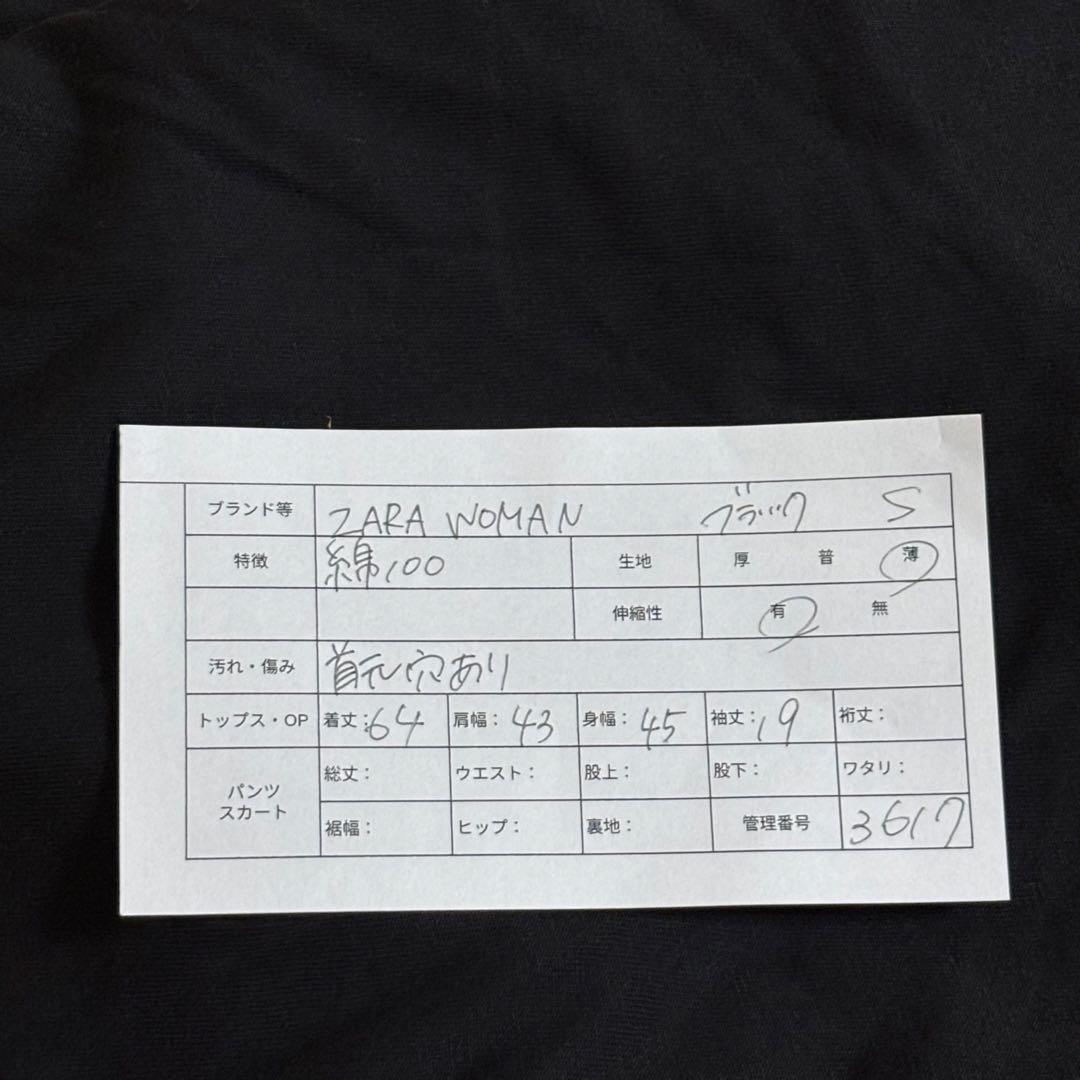 ブランド等 ZARA WOMAN ブラック S
特徴 綿100 生地 厚 普 薄
伸縮性 有 無
汚れ・傷み 首元穴あり
トップス・OP 着丈:64 肩幅:43 身幅:45 袖丈:19 裄丈:
パンツ スカート 総丈: ウエスト: 股上: 股下: ワタリ:
裾幅: ヒップ: 裏地: 管理番号 3617